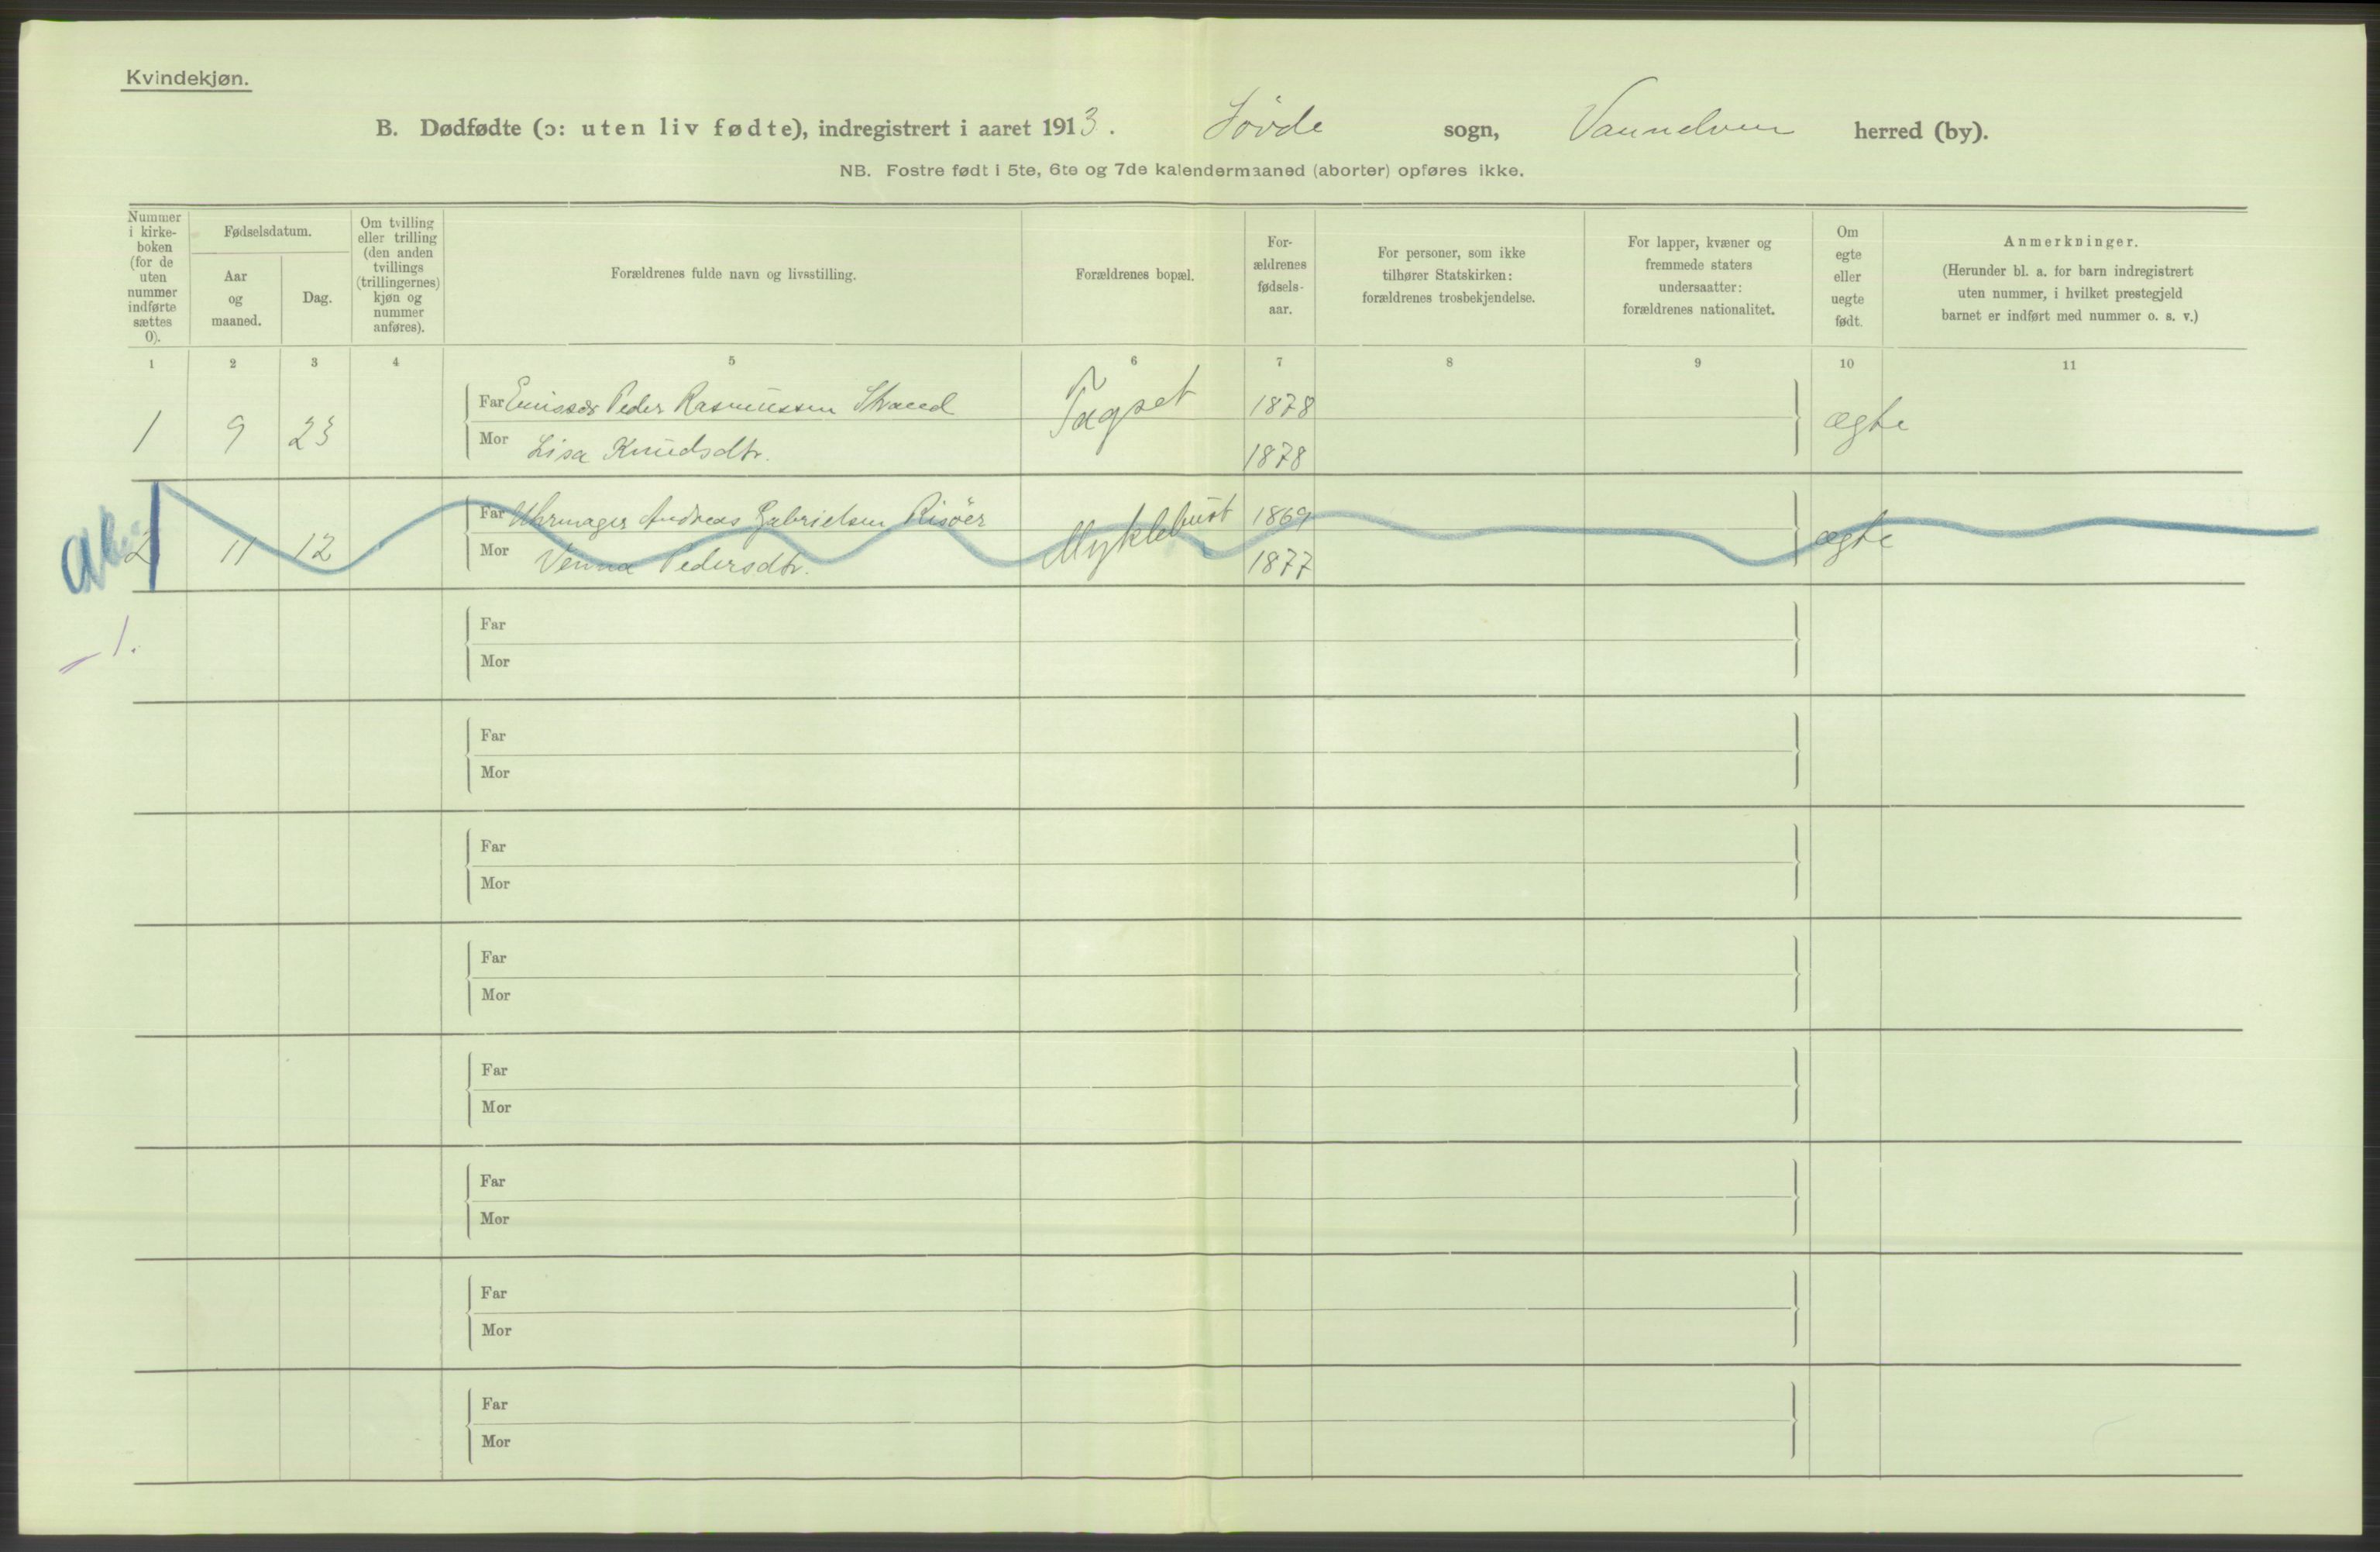 Kvindekjøn.
B. Dødfødte (ɔ: uten liv fødte), indregistrert i aaret 1913. Søvde sogn, Vannelven herred (by).
NB. Fostre født i 5te, 6te og 7de kalendermaaned (aborter) opføres ikke.
Nummer i kirke-boken (for de uten nummer indførte sættes 0).
Fødselsdatum.
Aar og maaned.
Dag.
Om tvilling eller trilling (den anden tvillings (trillingernes) kjøn og nummer anføres).
Forældrenes fulde navn og livsstilling.
Forældrenes bopæl.
For-ældrenes fødsels-aar.
For personer, som ikke tilhører Statskirken: forældrenes trosbekjendelse.
For lapper, kvæner og fremmede staters undersaatter: forældrenes nationalitet.
Om egte eller uegte født.
Anmerkninger.
(Herunder bl. a. for barn indregistrert uten nummer, i hvilket prestegjeld barnet er indført med nummer o. s. v.)
1 2 3 4 5 6 7 8 9 10 11
1 9 23 Far Emissær Peder Rasmussen Strand 1878 ægte
Mor Lisa Knudsdtr. 1878
2 11 12 Far Uhrmager Andreas Gabrielsen Risöer Myklebust 1869 ægte
Mor Pedersdtr. 1877
1.
Far
Mor
Far
Mor
Far
Mor
Far
Mor
Far
Mor
Far
Mor
Far
Mor
Far
Mor